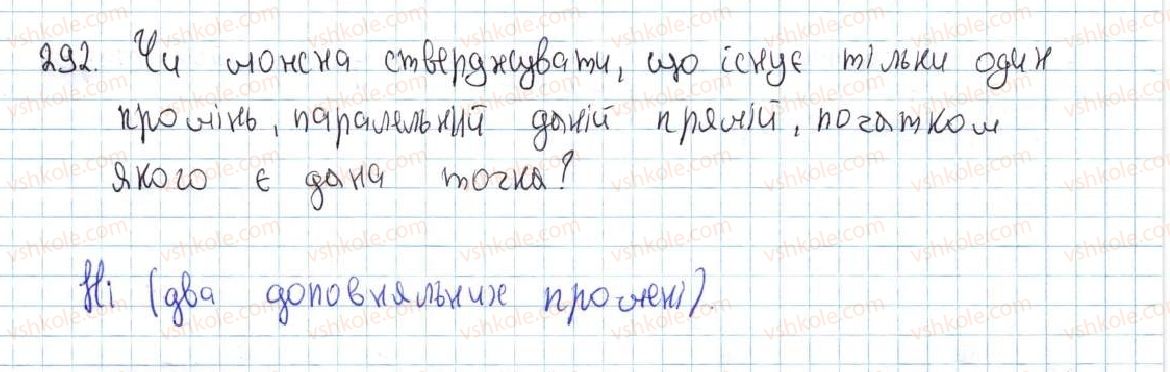 292. Чи можна стверджувати, що існує тільки один
промінь, паралельний даній прямій, початком
якого є дана точка?
Ні (два доповняльних промені).